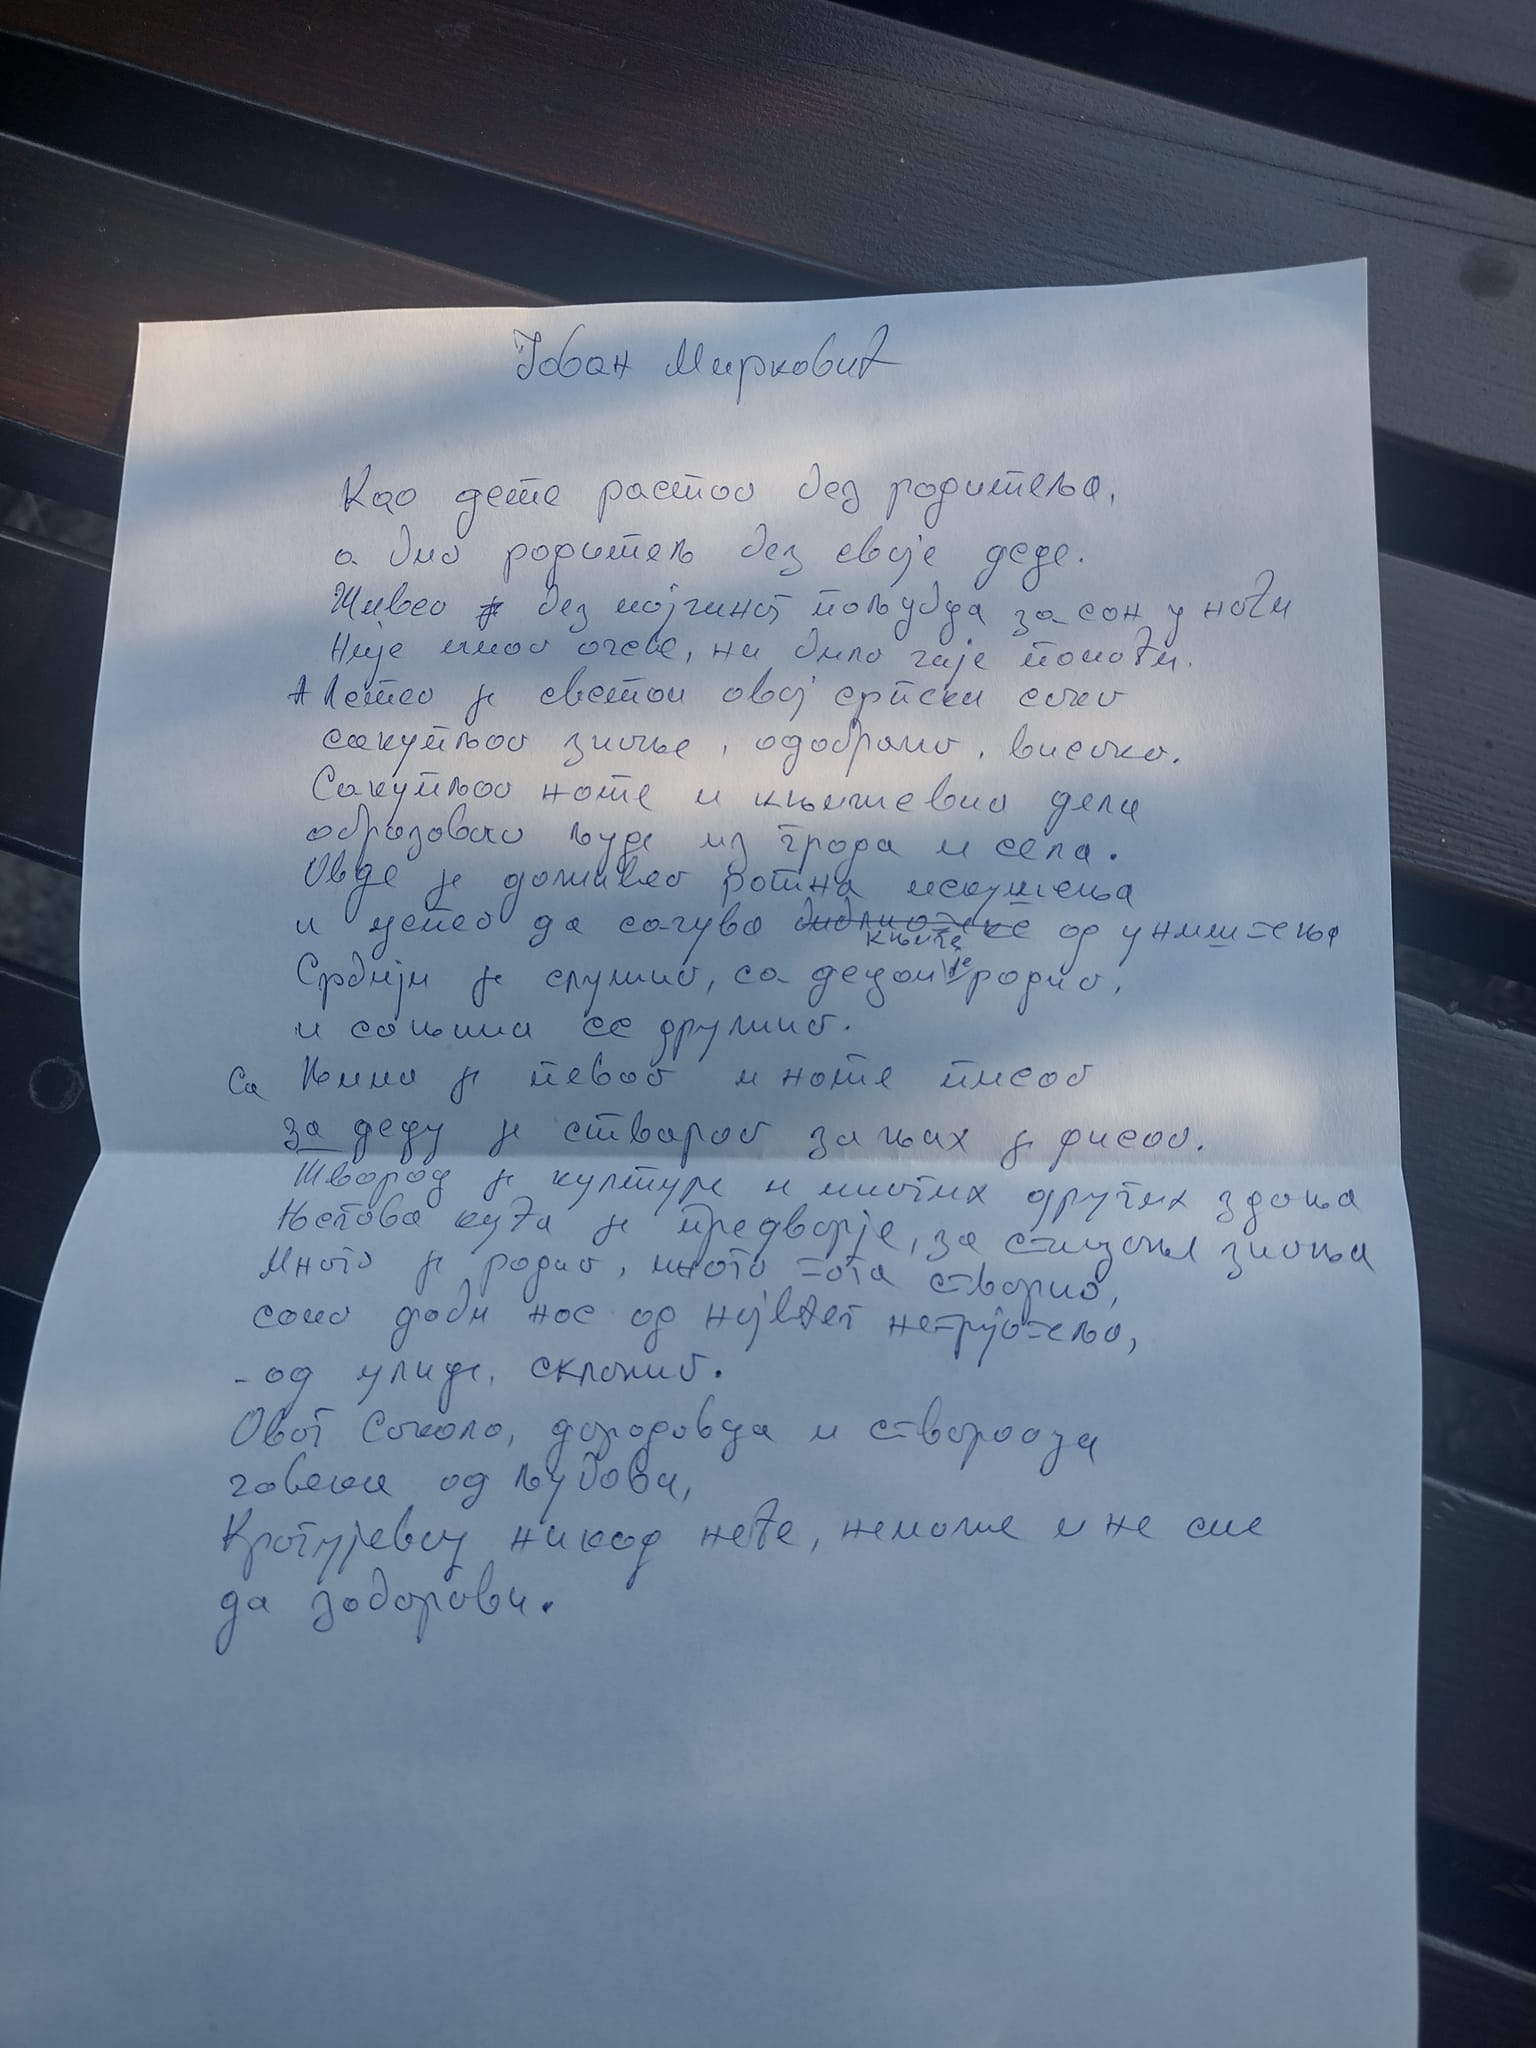 Јован Мирковић
Као дете растао без родитеља,
а био родитељ без своје деце.
Живео без мајчиног пољубца за сан у ноћи
Није имао очеве, ни било чије помоћи.
А летео је светом овај српски соко
сакупљао знање, одабрано, високо.
Сакупљао ноте и књижевна дела
образовао људе из града и села.
Овде је доживео ратна искушења
и успео да сачува библиотеке књиге од уништења
Србији је служио, са децом је радио,
и са њима се дружио.
Са њима је певао и ноте писао
за децу је стварао за њих је дисао.
Твород је културе и многих других здања
Његова кућа је предворје, за стицање знања
Много је радио, много тога створио,
само да би нас од највећег непријатеља,
- од улице, склонио.
Овог Сокола, дародавца иствараоза
човека од љубави,
Крагујевац никад неће, неможе и не сме
да заборави.